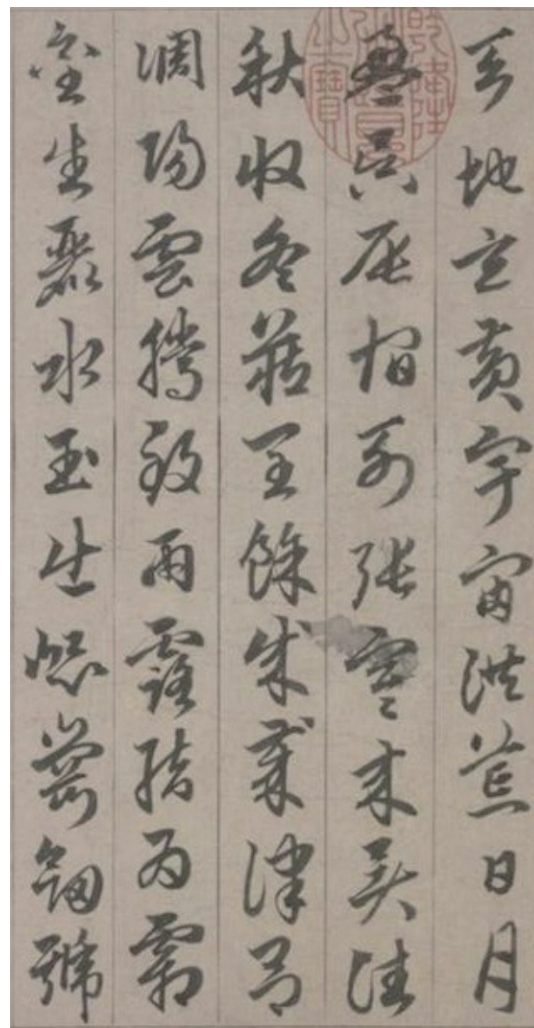 天地玄黃宇宙洪荒日月
盈昃辰宿列張寒來暑往
秋收冬藏閏餘成歲律呂
調陽雲騰致雨露結為霜
金生麗水玉出崐崗劔號
乾隆御覽之寶